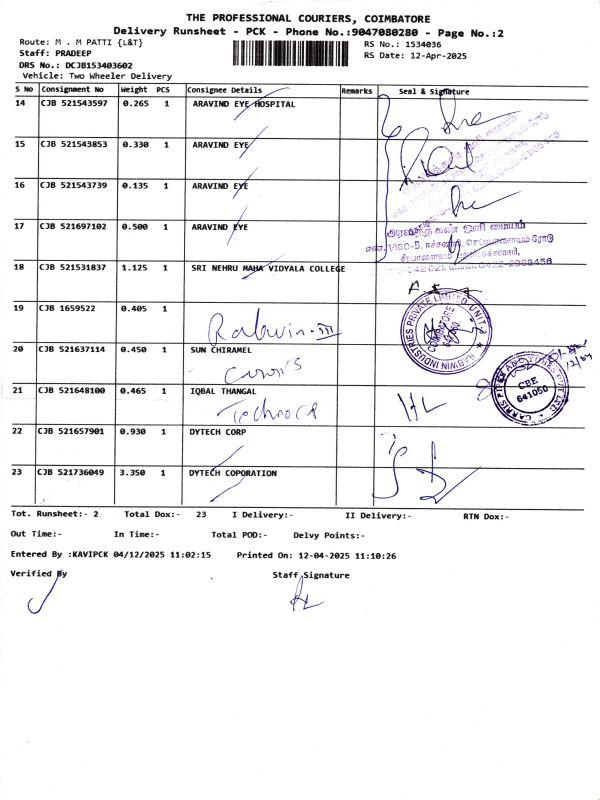 THE PROFESSIONAL COURIERS, COIMBATORE
Delivery Runsheet - PCK - Phone No.:9047080280 - Page No.:2
Route: M . M PATTI {L&T}
RS No.: 1534036
Staff: PRADEEP
RS Date: 12-Apr-2025
DRS No.: DCJB153403602
Vehicle: Two Wheeler Delivery
S No Consignment No Weight PCS Consignee Details Remarks Seal & Signature
14 CJB 521543597 0.265 1 ARAVIND EYE HOSPITAL
15 CJB 521543853 0.330 1 ARAVIND EYE
16 CJB 521543739 0.135 1 ARAVIND EYE
17 CJB 521697102 0.500 1 ARAVIND EYE
அரவிந்த் கண் ஒளி மையம்
18 CJB 521531837 1.125 1 SRI NEHRU MAHA VIDYALA COLLEGE
19 CJB 1659522 0.405 1
Rabwin-III
RABWIN INDUSTRIES PRIVATE LIMITED
COIMBATORE
20 CJB 521637114 0.450 1 SUN CHIRAMEL
Carris
CARRIS PIPES AND TUBES PVT LTD
CBE
641050
21 CJB 521648100 0.465 1 IQBAL THANGAL
22 CJB 521657901 0.930 1 DYTECH CORP
23 CJB 521736049 3.350 1 DYTECH COPORATION
Tot. Runsheet:- 2 Total Dox:- 23 I Delivery:- II Delivery:- RTN Dox:-
Out Time:- In Time:- Total POD:- Delvy Points:-
Entered By :KAVIPCK 04/12/2025 11:02:15 Printed On: 12-04-2025 11:10:26
Verified By Staff Signature